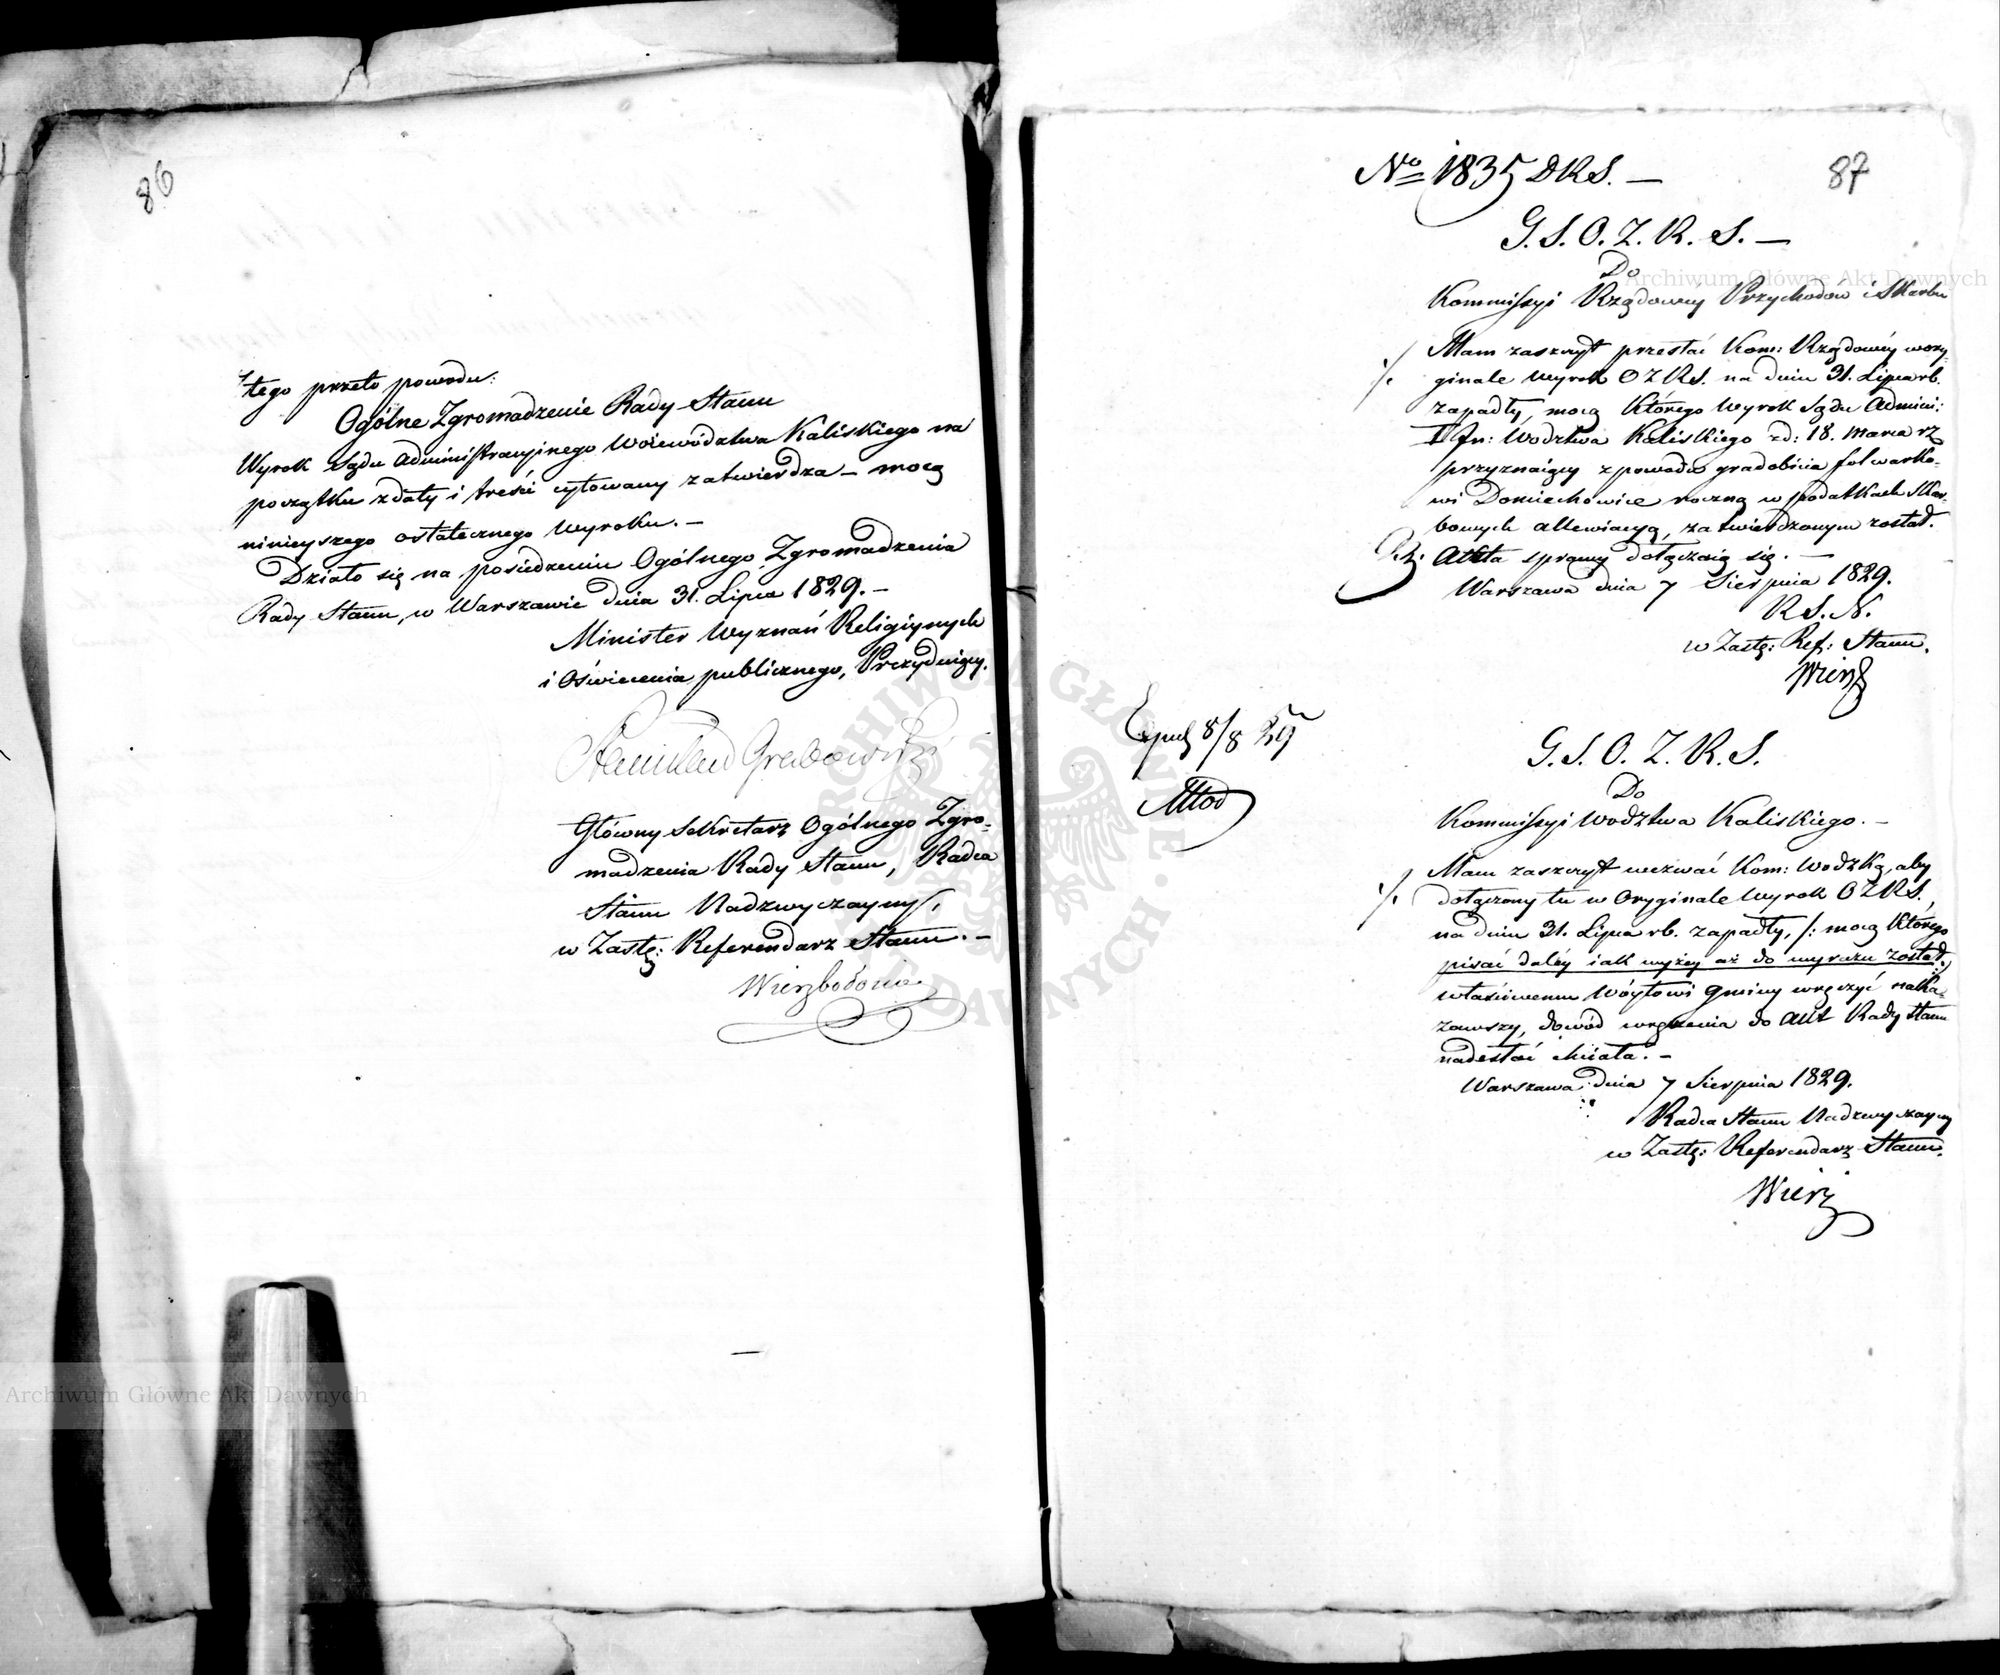 86
z tego przeto powodu:
Ogólne Zgromadzenie Rady Stanu
Wyrok Sądu Administracyjnego Woiewództwa Kaliskiego na
początku z daty i treści cytowany zatwierdza – mocą
ninieyszego ostatecznego Wyroku. –
Działo się na posiedzeniu Ogólnego Zgromadzenia
Rady Stanu, w Warszawie dnia 31. Lipca 1829. –
Minister Wyznań Religiynych
i Oświecenia publicznego, Prezyduiący.
Stanisław Grabowski
Główny Sekretarz Ogólnego Zgro-
madzenia Rady Stanu, Radca
Stanu Nadzwyczayny,
w Zastę: Referendarz Stanu. –
Wierzbołowicz
No 1835 DRS. –
87
G. S. O. Z. R. S. –
Do
Kommissyi Rządowéy Przychodów i Skarbu
Mam zaszczyt przesłać Kom: Rządowéy w ory-
ginale Wyrok OZRS. na dniu 31. Lipca rb.
zapadły, mocą którego Wyrok Sądu Admini:
I Jn: Wodztwa Kaliskiego z d: 18. Marca rz
przyznaiący z powodu gradobicia folwarko-
wi Domiechowice roczną w podatkach Skar-
bowych allewiacyą, zatwierdzonym został.
Akta sprawy dołączaią się. –
Warszawa dnia 7 Sierpnia 1829.
R. S. N.
w Zastę: Ref: Stanu.
Wierz
8/8 29
Młod
G. S. O. Z. R. S.
Do
Kommissyi Wodztwa Kaliskiego. –
Mam zaszczyt wezwać Kom: Wodzką, aby
dołączony tu w Oryginale Wyrok OZRS.,
na dniu 31. Lipca rb. zapadły, /: mocą którego
pisać daléy iak wyżey aż do wyrazu został:/
właściwemu Wóytowi Gminy wręczyć naka-
zawszy, dowód wręczenia do Akt Rady Stanu
nadesłać chciała. –
Warszawa dnia 7 Sierpnia 1829.
Radca Stanu Nadzwyczayny
w Zastę: Referendarz Stanu.
Wierz
Archiwum Główne Akt Dawnych
Archiwum Główne Akt Dawnych
ARCHIWUM GŁÓWNE AKT DAWNYCH